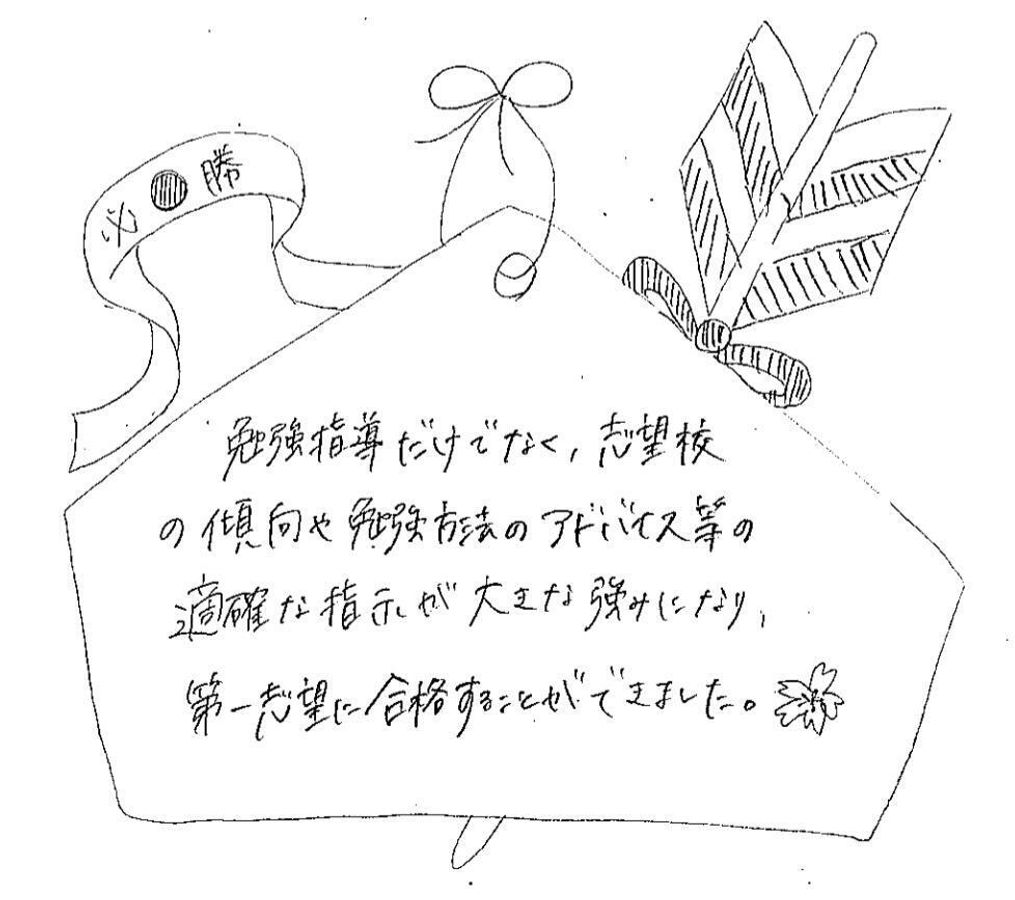 必 勝
勉強指導だけでなく,志望校
の傾向や勉強方法のアドバイス等の
適確な指示が大きな強みになり,
第一志望に合格することができました。